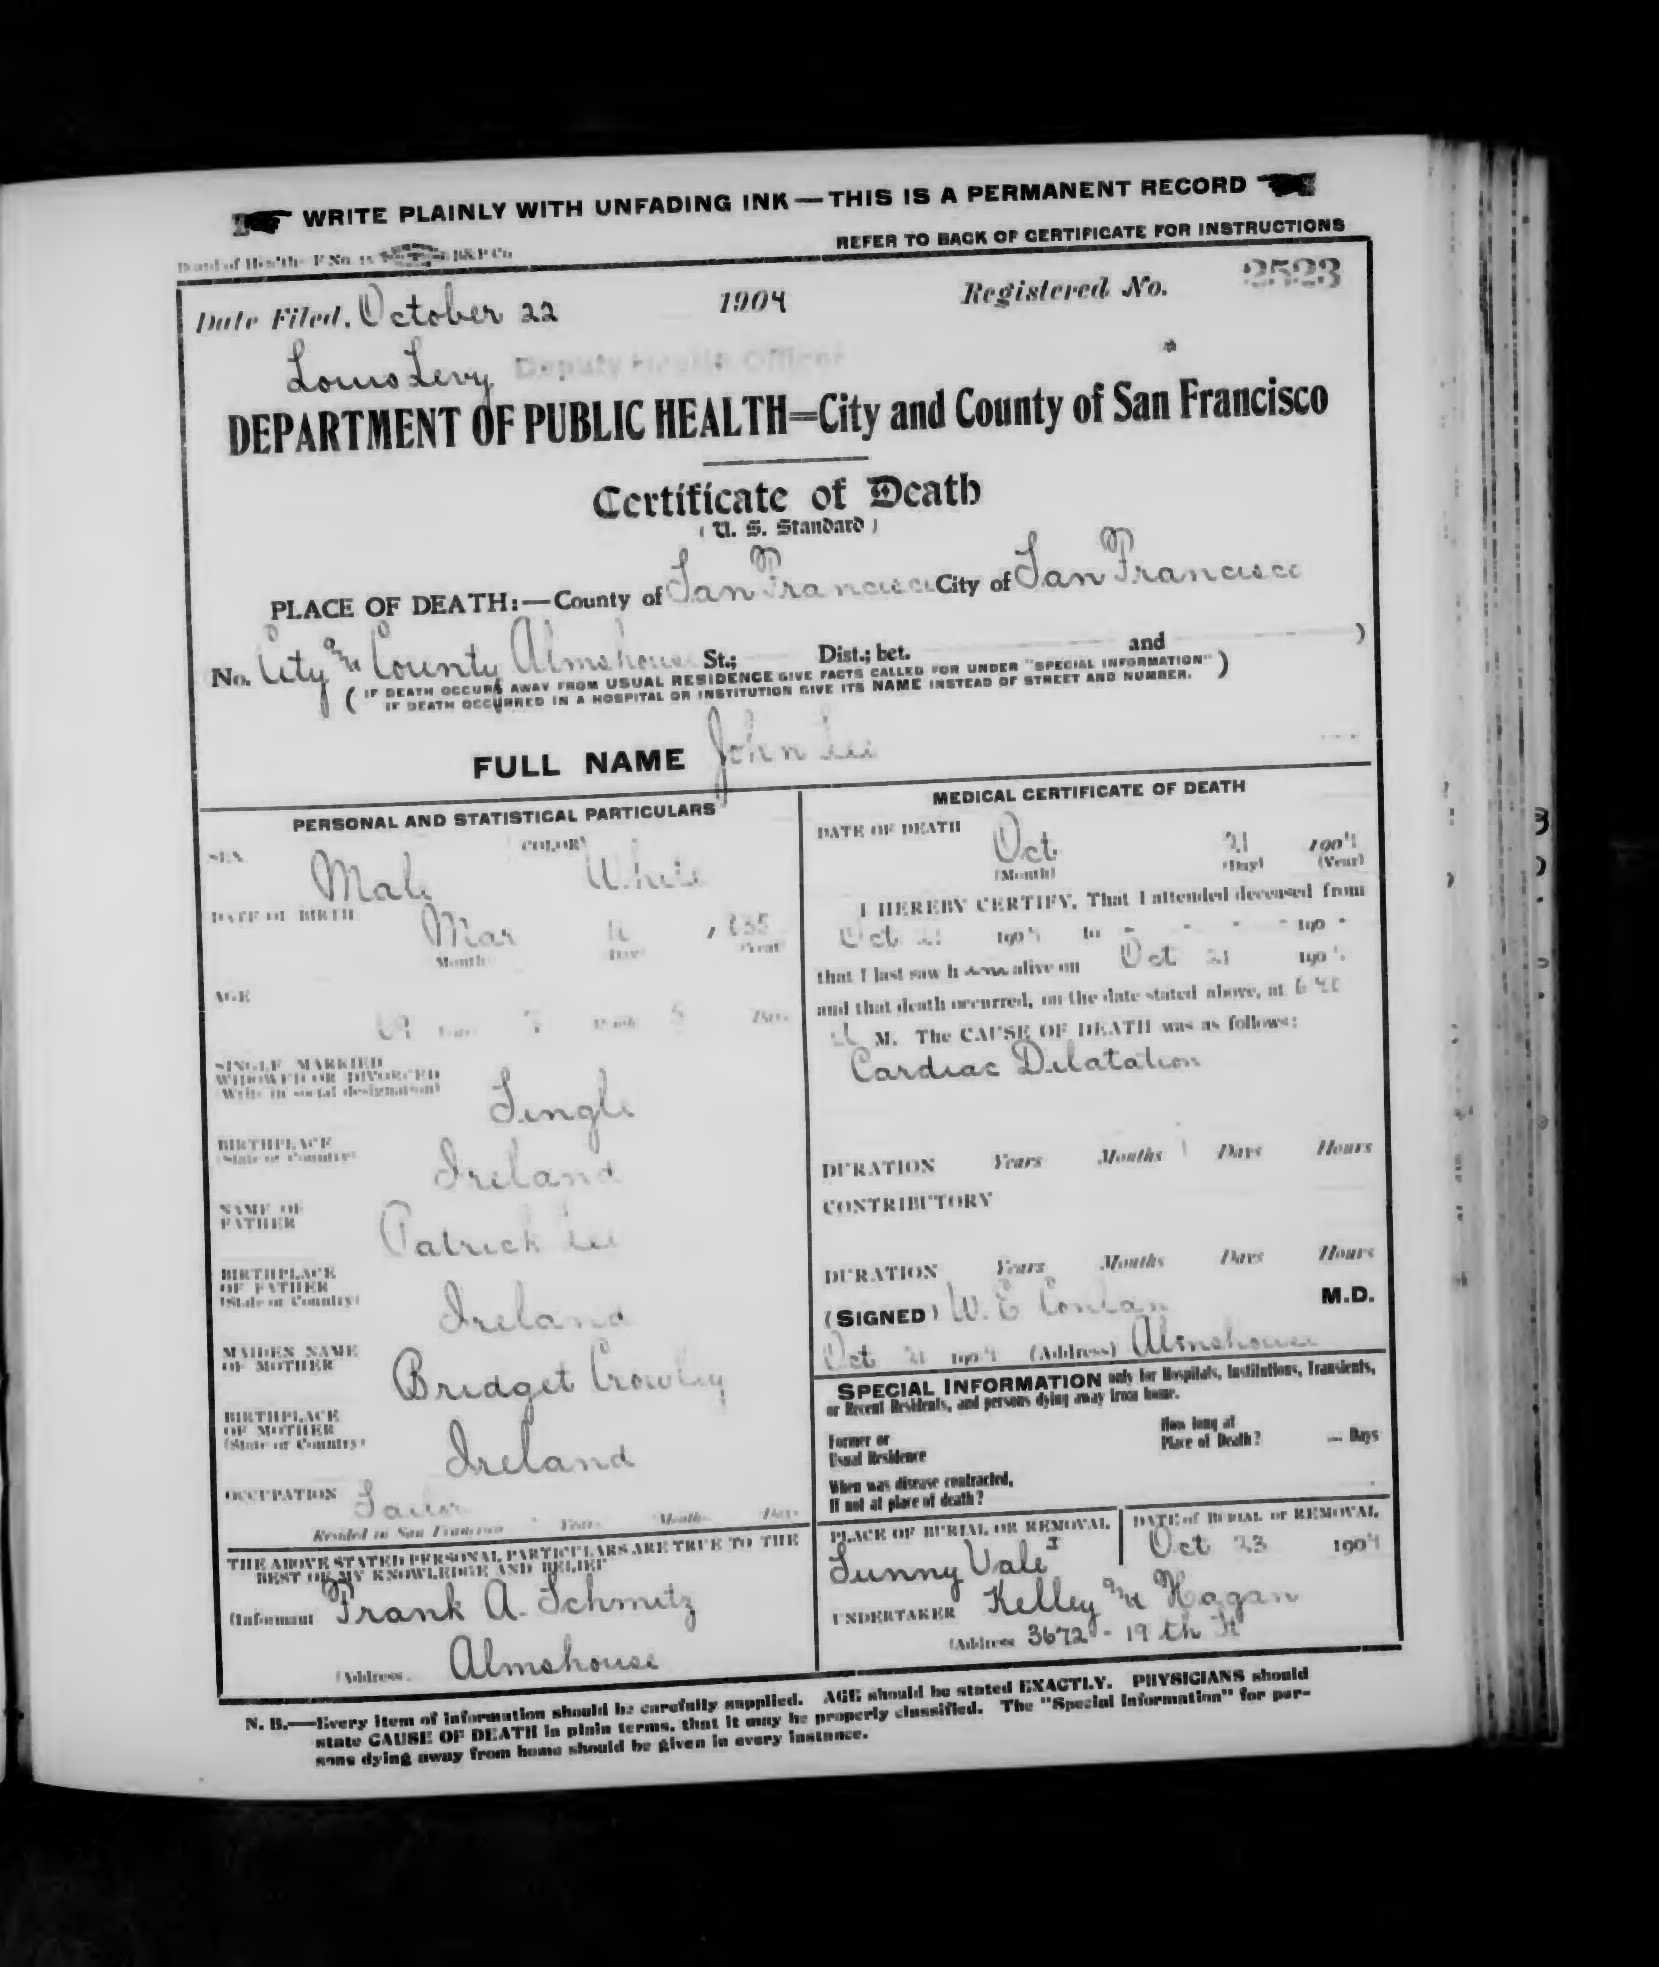 WRITE PLAINLY WITH UNFADING INK—THIS IS A PERMANENT RECORD
REFER TO BACK OF CERTIFICATE FOR INSTRUCTIONS
Board of Health F No. 15 B&P Co
Date Filed, October 22 1904 Registered No. 2523
Louis Levy Deputy Health Officer
DEPARTMENT OF PUBLIC HEALTH=City and County of San Francisco
Certificate of Death
( U. S. Standard )
PLACE OF DEATH:—County of San Francisco City of San Francisco
No. City and County Almshouse St.; Dist.; bet. and )
( IF DEATH OCCURS AWAY FROM USUAL RESIDENCE GIVE FACTS CALLED FOR UNDER "SPECIAL INFORMATION" )
IF DEATH OCCURRED IN A HOSPITAL OR INSTITUTION GIVE ITS NAME INSTEAD OF STREET AND NUMBER.
FULL NAME John Lee
PERSONAL AND STATISTICAL PARTICULARS
SEX Male COLOR White
DATE OF BIRTH Mar 1835
Month Day Year
AGE 69 Years 7 Months Days
SINGLE MARRIED
WIDOWED OR DIVORCED
(Write in social designation) Single
BIRTHPLACE
(State or Country) Ireland
NAME OF
FATHER Patrick Lee
BIRTHPLACE
OF FATHER
(State or Country) Ireland
MAIDEN NAME
OF MOTHER Bridget Crowley
BIRTHPLACE
OF MOTHER
(State or Country) Ireland
OCCUPATION Sailor
Resided in San Francisco Years Months Days
THE ABOVE STATED PERSONAL PARTICULARS ARE TRUE TO THE
BEST OF MY KNOWLEDGE AND BELIEF
(Informant Frank A. Schmitz
(Address. Almshouse
MEDICAL CERTIFICATE OF DEATH
DATE OF DEATH Oct 21 1904
(Month) (Day) (Year)
I HEREBY CERTIFY, That I attended deceased from
Oct 21 1904 to - - - - 190 -
that I last saw h im alive on Oct 21 1904
and that death occurred, on the date stated above, at 6 40
M. The CAUSE OF DEATH was as follows:
Cardiac Dilatation
DURATION Years Months Days Hours
CONTRIBUTORY
DURATION Years Months Days Hours
(SIGNED) W. E Conlan M.D.
Oct 21 1904 (Address) Almshouse
SPECIAL INFORMATION only for Hospitals, Institutions, Transients,
or Recent Residents, and persons dying away from home.
Former or
Usual Residence
How long at
Place of Death? — Days
When was disease contracted,
If not at place of death?
PLACE OF BURIAL OR REMOVAL
Sunny Vale I
DATE of BURIAL or REMOVAL
Oct 23 1904
UNDERTAKER Kelley and Hagan
(Address 3672 - 19 th St
N. B.—Every item of information should be carefully supplied. AGE should be stated EXACTLY. PHYSICIANS should
state CAUSE OF DEATH in plain terms, that it may be properly classified. The "Special Information" for per-
sons dying away from home should be given in every instance.